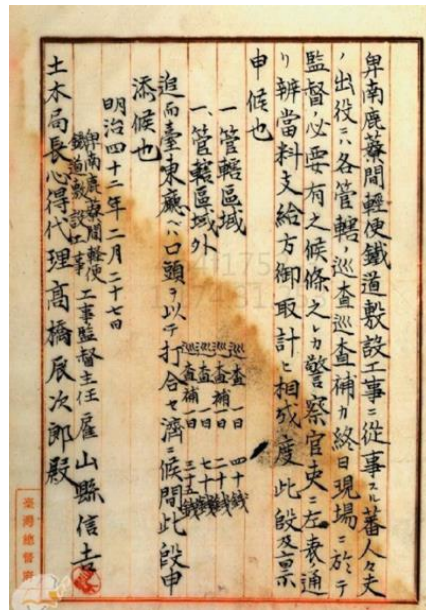 卑南鹿藔間輕便鐵道敷設工事ニ從事スル蕃人々夫
ノ出役ニハ各管轄ノ巡查巡查補カ終日現場ニ於テ
監督ノ必要有之候條之レカ警察官吏ニ左表ノ通
リ辨當料支給方御取計ヒ相成度此段及稟
申候也
一 管轄區域 巡查一日 四十錢
巡查補一日 二十錢
一、管轄區域外 巡查一日 七十錢
巡查補一日 三十五錢
追而臺東廳ヘハ口頭ヲ以テ打合セ濟ニ候間此段申
添候也
明治四十二年二月二十七日
卑南鹿藔間輕便
鐵道敷設工事 工事監督主任 雇 山縣信吉
土木局長心得代理高橋辰次郎殿
臺灣總督府